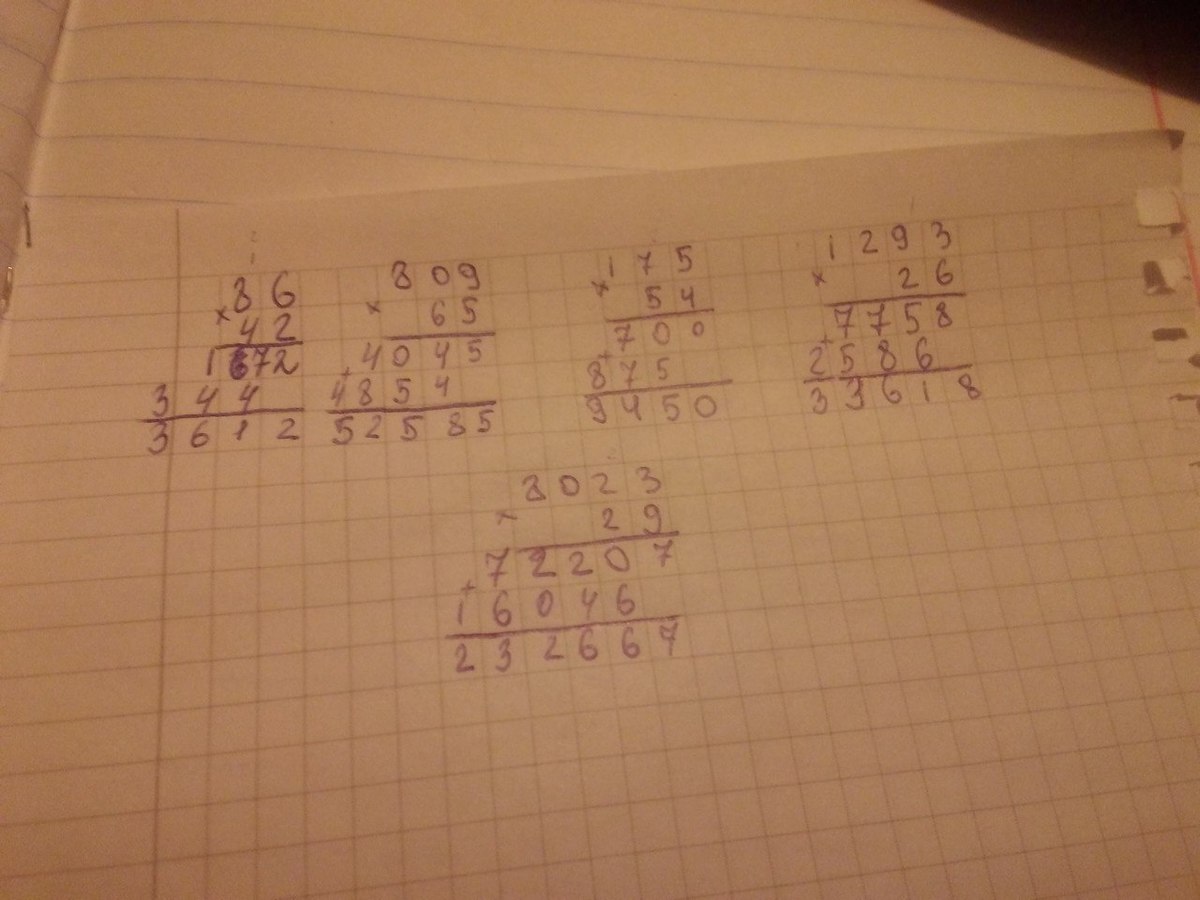 86
× 42
1672
344
3612
809
× 65
4045
+
4854
52585
175
× 54
700
+
875
9450
1293
× 26
7758
+
2586
33618
8023
× 29
72207
+
16046
232667